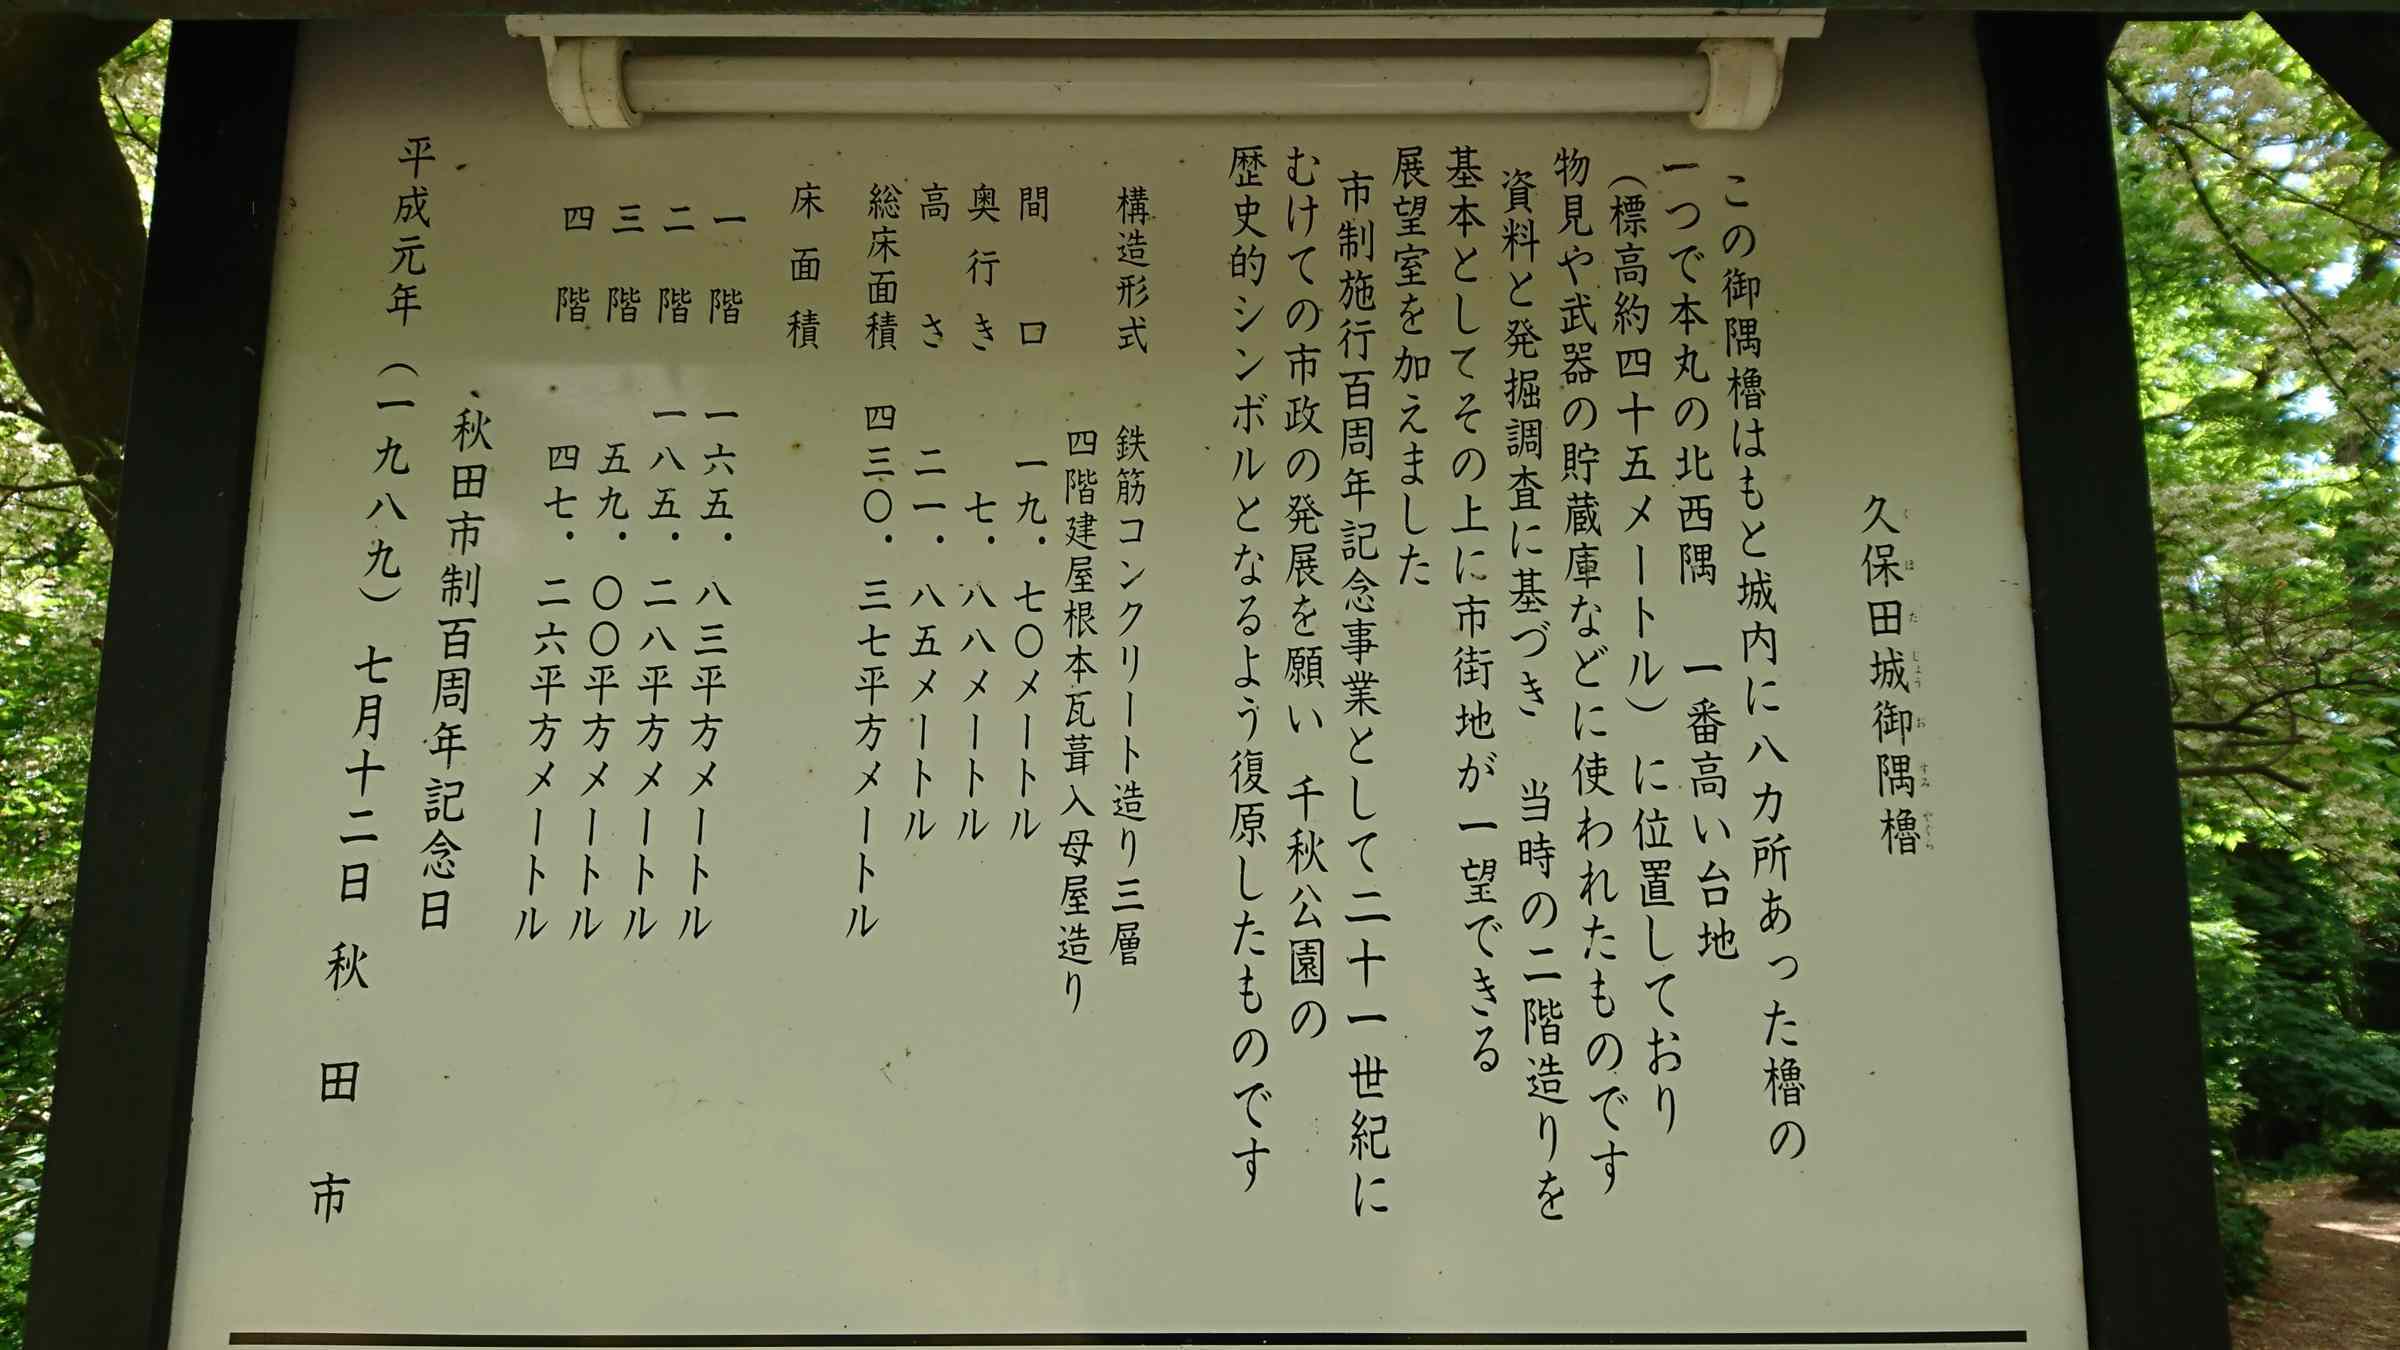 久保田城御隅櫓
くほたじょうおすみやぐら
この御隅櫓はもと城内に八カ所あった櫓の
一つで本丸の北西隅　一番高い台地
（標高約四十五メートル）に位置しており
物見や武器の貯蔵庫などに使われたものです
資料と発掘調査に基づき　当時の二階造りを
基本としてその上に市街地が一望できる
展望室を加えました
市制施行百周年記念事業として二十一世紀に
むけての市政の発展を願い　千秋公園の
歴史的シンボルとなるよう復原したものです
構造形式　鉄筋コンクリート造り三層
四階建屋根本瓦葺入母屋造り
間口　一九．七〇メートル
奥行き　七．八八メートル
高さ　二一．八五メートル
総床面積　四三〇．三七平方メートル
床面積
一階　一六五．八三平方メートル
二階　一八五．二八平方メートル
三階　五九．〇〇平方メートル
四階　四七．二六平方メートル
秋田市制百周年記念日
平成元年（一九八九）七月十二日　秋田市